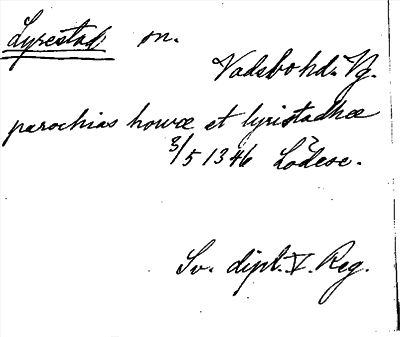 Lyrestad sn.
Vadsbo hd. Vg.
parochias howæ et lyristadhæ
3/5 1346 Lödese.
Sv. dipl. V. Reg.